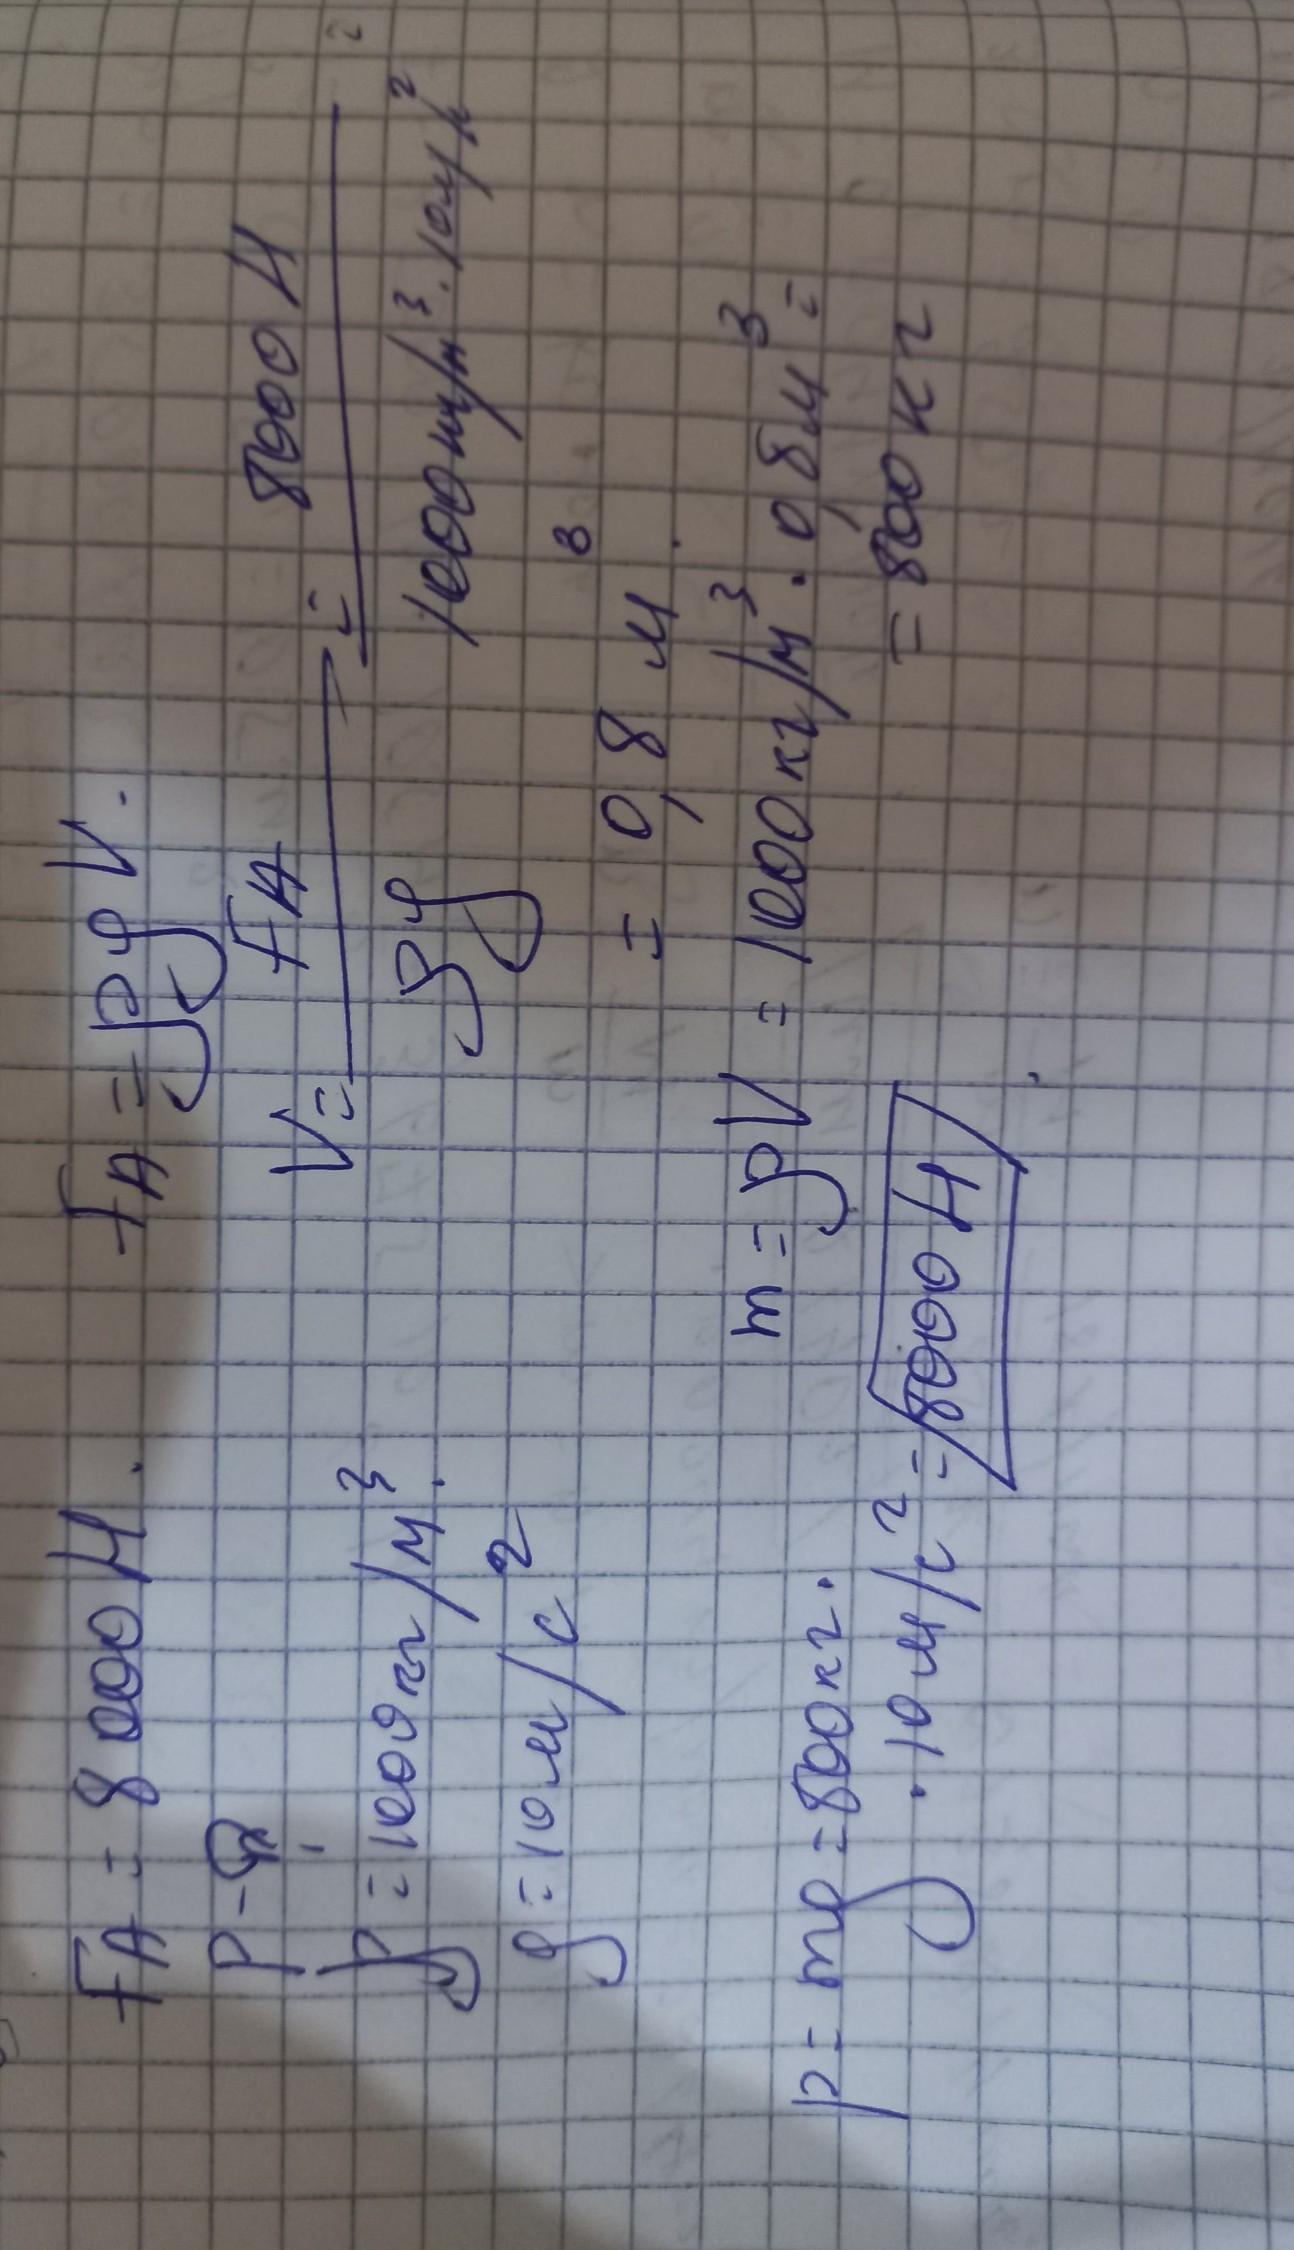 FA = 8000 Н.
P - ?
ρ = 1000 кг/м³.
g = 10 м/с²
FA = ρgV.
V = FA/ρg = 8000 Н / 1000 кг/м³ · 10 м/с²
= 0,8 м³.
m = ρV = 1000 кг/м³ · 0,8 м³ =
= 800 кг
p = mg = 800 кг.
· 10 м/с² = 8000 Н